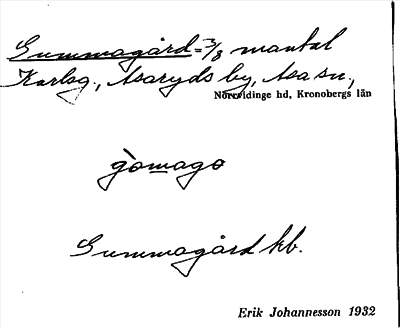 Gummagård = 3/8 mantal
Karlsg., Asaryds by, Asa sn,
Norrvidinge hd, Kronobergs län
gòmago
Gummagård kb.
Erik Johannesson 1932